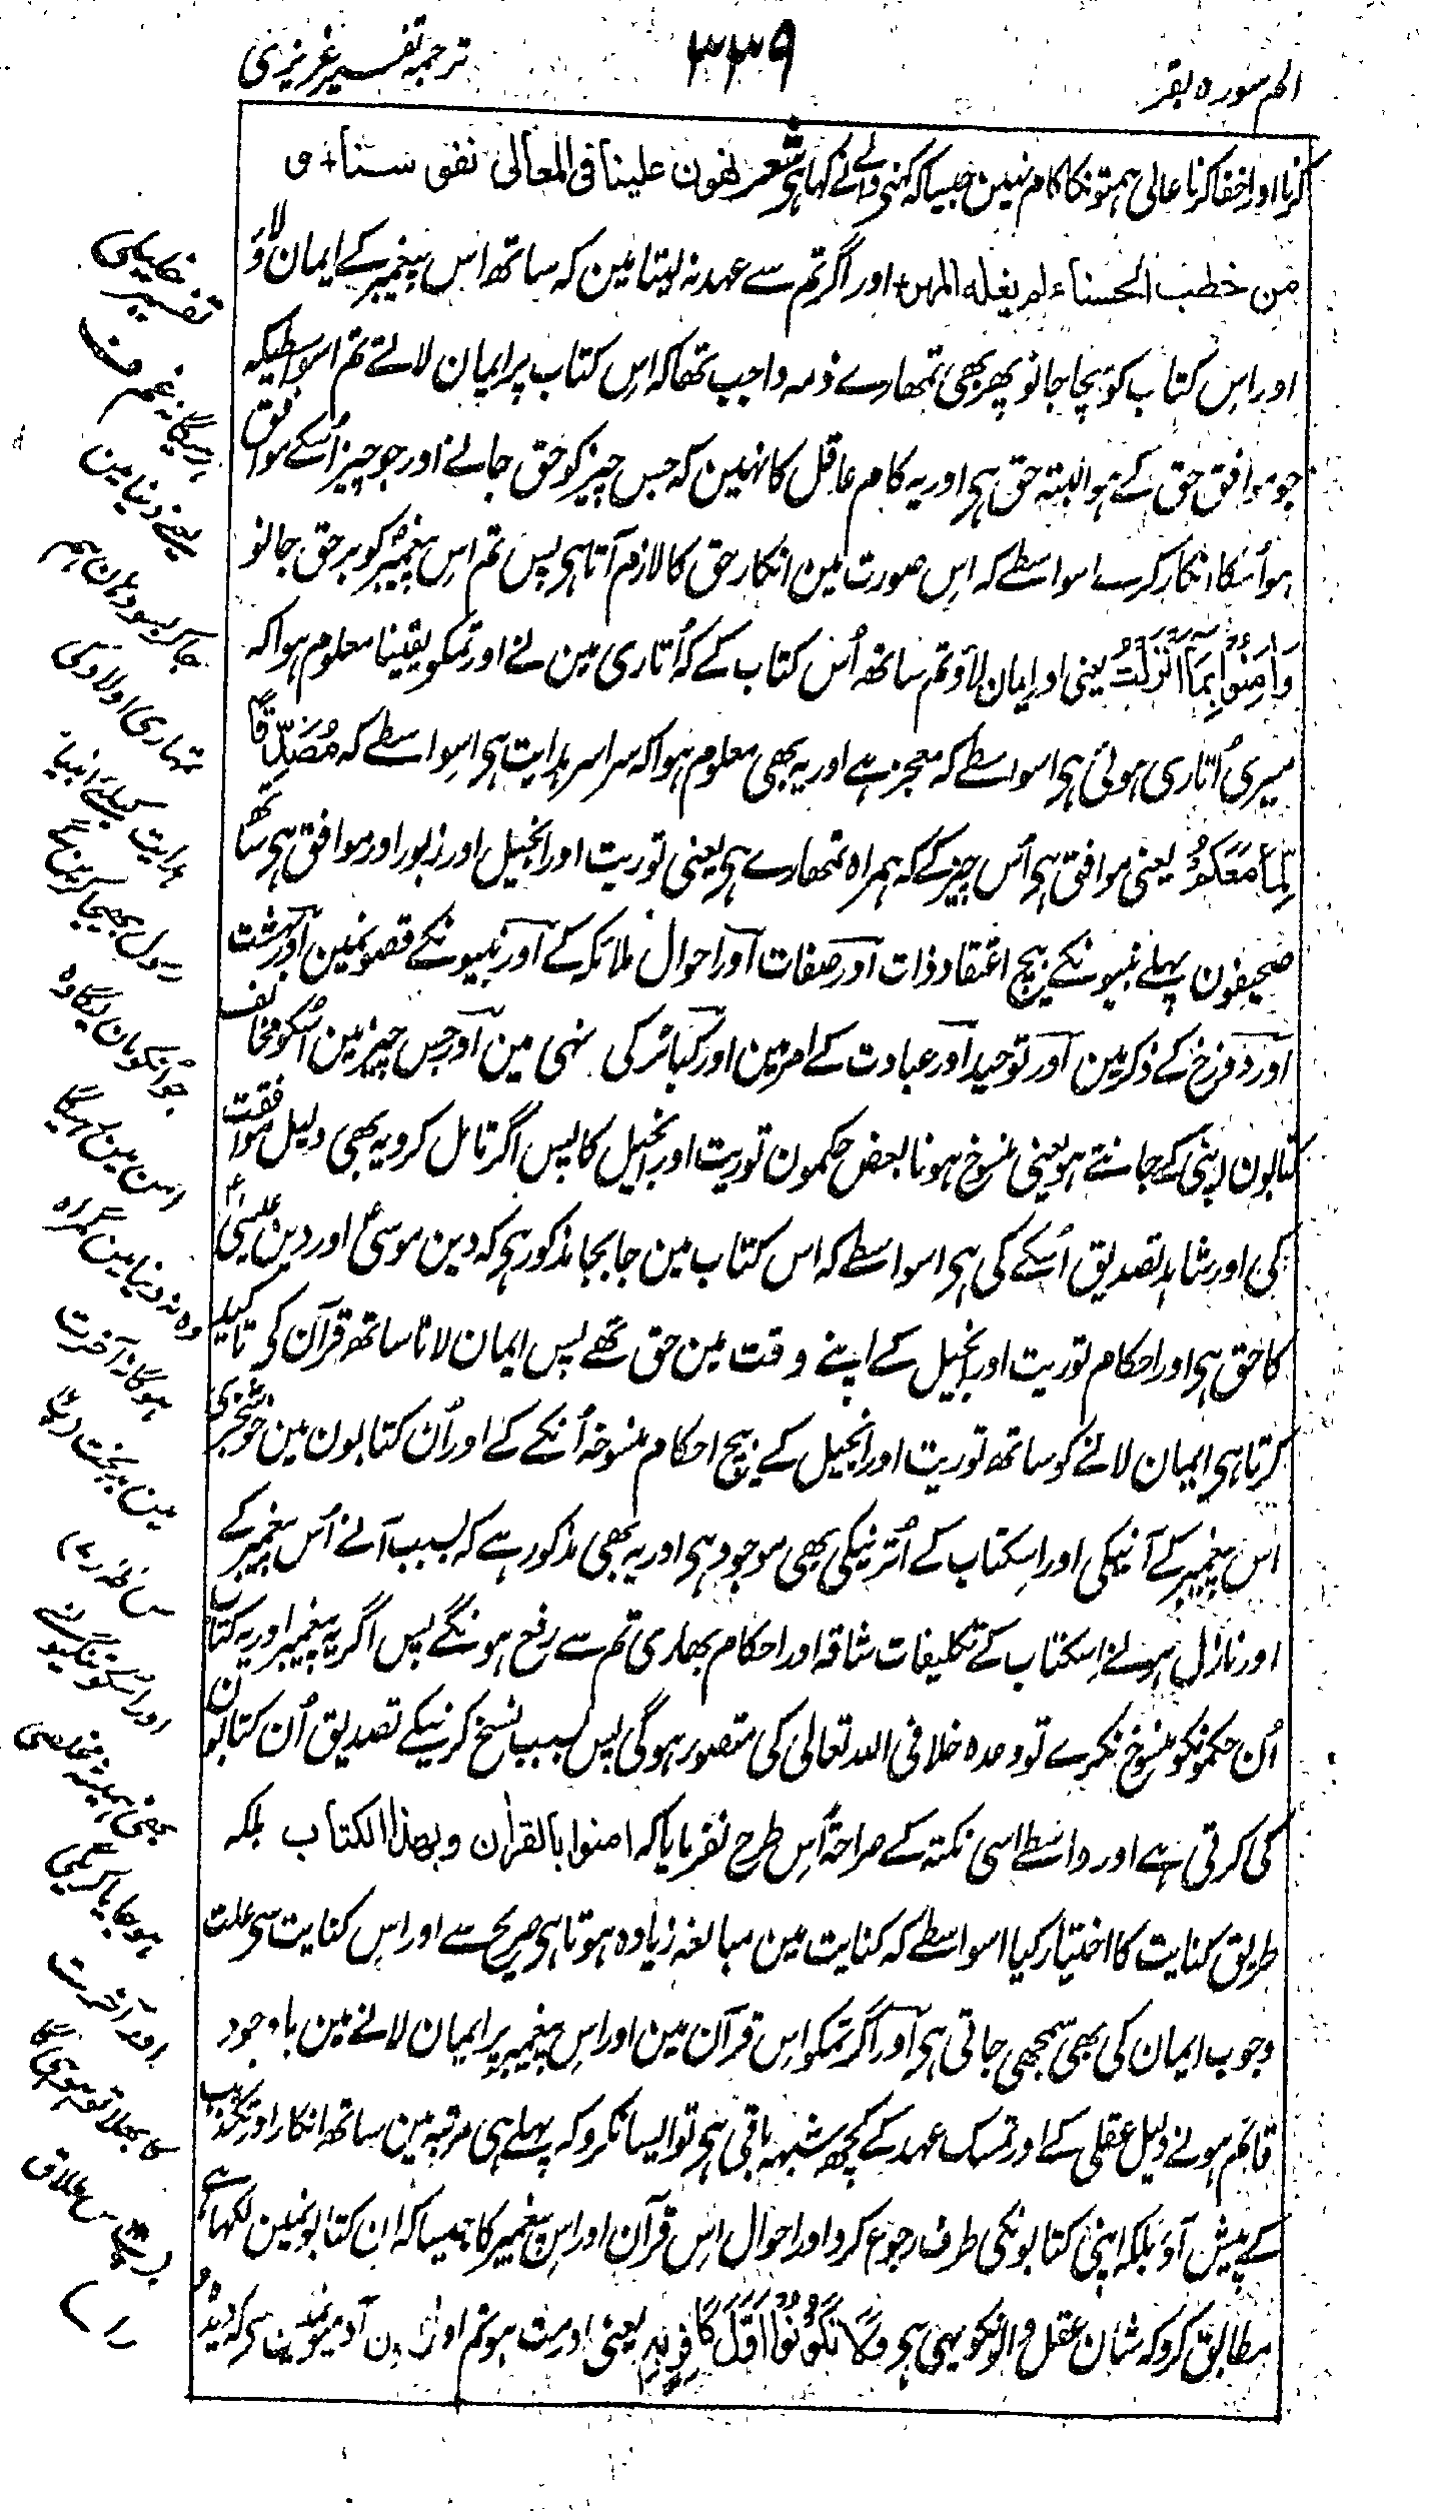 الم سورہ بقر
۳۳۹
ترجمہ تفسیر عزیزی
کرنا اور اخفا کرنا عالی ہمتونکا کام نہین جیسا کہ کہنی والے نے کہا ہی شعر تهون علینا فی المعالی نفوسنا + و
من خطب الحسناء لم یغله المهر + اور اگر تم سے عہد نہ لیتا مین کہ ساتھ اس پیغمبر کے ایمان لاؤ
اور اس کتاب کو سچا جانو پھر بھی تمھارے ذمہ واجب تھا کہ اس کتاب پر ایمان لاتے تم اسواسطیکہ
جو موافق حق کے ہو البتہ حق ہی اور یہ کام عاقل کا نہین کہ جس چیز کو حق جانے اور جو چیز اُسکے موافق
ہو اُسکا انکار کرے اسواسطے کہ اس صورت مین انکار حق کا لازم آتا ہی پس تم اس پیغمبر کو برحق جانو
وَآمِنُوا بِمَا أَنْزَلْتُ یعنی اور ایمان لاؤ تم ساتھ اُس کتاب کے کہ اُتاری مین نے اور تمکو یقینا معلوم ہوا کہ
میری اُتاری ہوئی ہی اسواسطے کہ معجز ہے اور یہ بھی معلوم ہوا کہ سراسر ہدایت ہی اسواسطے کہ مُصَدِّقًا
لِّمَا مَعَكُمْ یعنی موافق ہی اُس چیز کے کہ ہمراہ تمھارے ہی یعنی توریت اور انجیل اور زبور اور موافق ہی ساتھ
صحیفون پہلے نبیونکے بیچ اعتقاد ذات اور صفات اور احوال ملائکہ کے اور نبیونکے قصونمین اور بہشت
اور دوزخ کے ذکر مین اور توحید اور عبادت کے امر مین اور کبائر کی نہی مین اور جس چیز مین اُسکو مخالف
کتابون اپنی کے جانتے ہو یعنی منسوخ ہونا بعض حکمون توریت اور انجیل کا پس اگر تامل کرو یہ بھی دلیل موافقت
کی اور شاہد تصدیق اُسکے کی ہی اسواسطے کہ اس کتاب مین جابجا مذکور ہی کہ دین موسیٰ اور دین عیسیٰ
کا حق ہی اور احکام توریت اور انجیل کے اپنے وقت مین حق تھے پس ایمان لانا ساتھ قرآن کی تاکید
کرتا ہی ایمان لانے کو ساتھ توریت اور انجیل کے بیچ احکام منسوخہ اُنکے کے اور اُن کتابون مین خوشخبری
اس پیغمبر کے آنیکی اور اسکتاب کے اُترنیکی بھی موجود ہی اور یہ بھی مذکور ہے کہ بسبب آنے اُس پیغمبر کے
اور نازل ہونے اسکتاب کے تکلیفات شاقہ اور احکام بھاری تم سے رفع ہونگے پس اگر یہ پیغمبر اور یہ کتاب
اُن حکمونکو منسوخ نکرے تو وعدہ خلافی اللہ تعالی کی متصور ہوگی پس بسبب نسخ کرنیکے تصدیق اُن کتابون
کی کرتی ہے اور واسطے اسی نکتہ کے صراحۃً اس طرح نفرمایا کہ امنوا بالقرٰان وبهذا الكتاب بلکہ
طریق کنایت کا اختیار کیا اسواسطے کہ کنایت مین مبالغہ زیادہ ہوتا ہی صریح سے اور اس کنایت سی علت
وجوب ایمان کی بھی سمجھی جاتی ہی اور اگر تمکو اس قرآن مین اور اس پیغمبر پر ایمان لانے مین باوجود
قائم ہونے دلیل عقلی کے اور تمسک عہد کے کچھ شبہہ باقی ہی تو ایسا نکرو کہ پہلے ہی مرتبہ مین ساتھ انکار اور تکذیب
کے پیش آؤ بلکہ اپنی کتابونکی طرف رجوع کرو اور احوال اس قرآن اور اس پیغمبر کا جیسا کہ ان کتابونمین لکھا ہے
مطابق کرو کہ شان عقل والونکو یہی ہی وَلَا تَكُونُوا أَوَّلَ كَافِرٍ بِهِ یعنی اور مت ہو تم اول آدمیونمین سی کہ دیدہ و
تفسیر خلیلی
یعنے دنیا مین
تمہاری اولاد کی
ہدایت کیلئے انبیا
رسول بھیجا کرین گے
جو اُنکو مان لیگا وہ
امن مین رہیگا
وہ نہ دنیا مین گمراہ
ہوگا نہ آخرت
مین بدبخت
اور آخرت